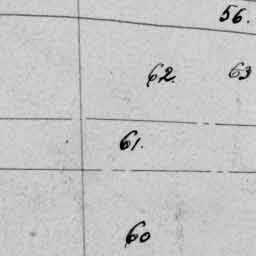 56.
62. 63
61.
60